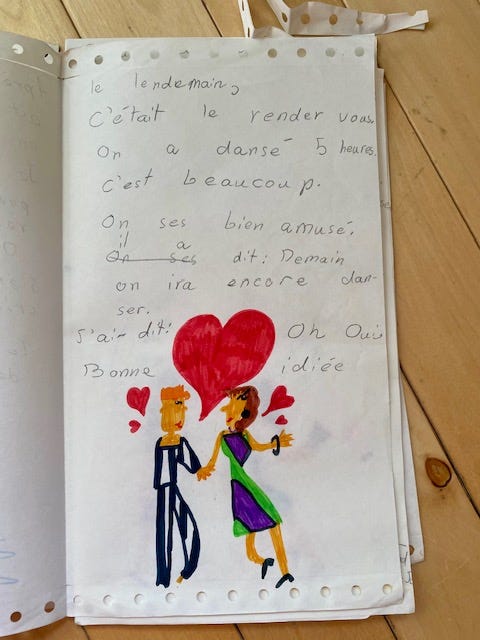 le lendemain,
C'était le render vous.
On a dansé 5 heures.
c'est beaucoup.
On ses bien amusé.
il a
On ses dit: Demain
on ira encore dan-
ser.
J'ai dit: Oh Oui
Bonne idiée